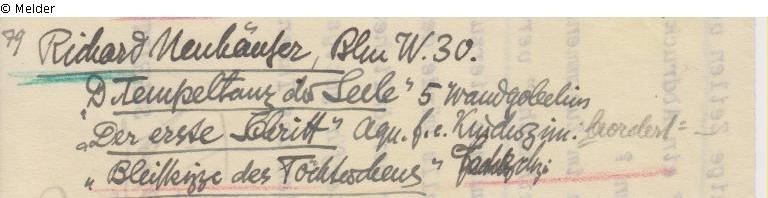 © Melder
79 Richard Neuhäuser, Bln W.30.
"D Tempeltanz der Seele" 5 Wandgobelins
"Der erste Schritt" Aqu. f. e. Kinderzim:
"Bleiskizze des Töchterchens"